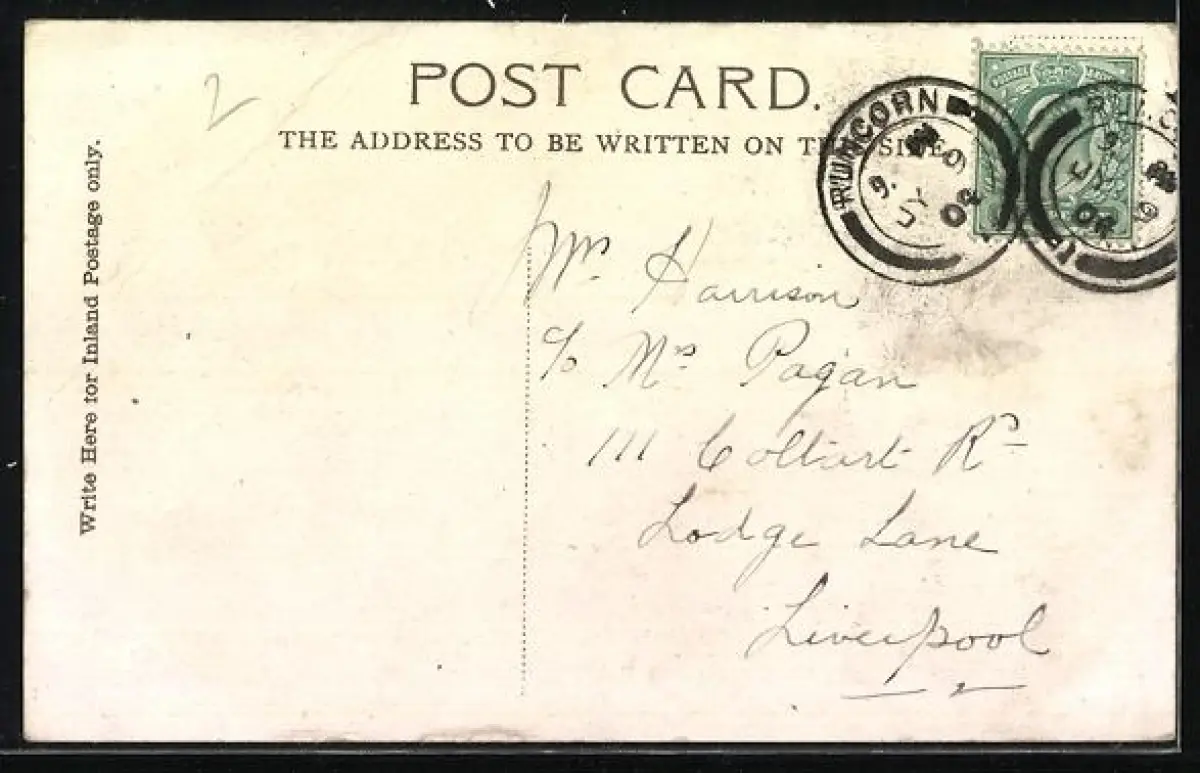 2
POST CARD.
THE ADDRESS TO BE WRITTEN ON THIS SIDE
Write Here for Inland Postage only.
RUNCORN
Mrs Harrison
c/o Mrs Pagan
111 Coltart Rd
Lodge Lane
Liverpool